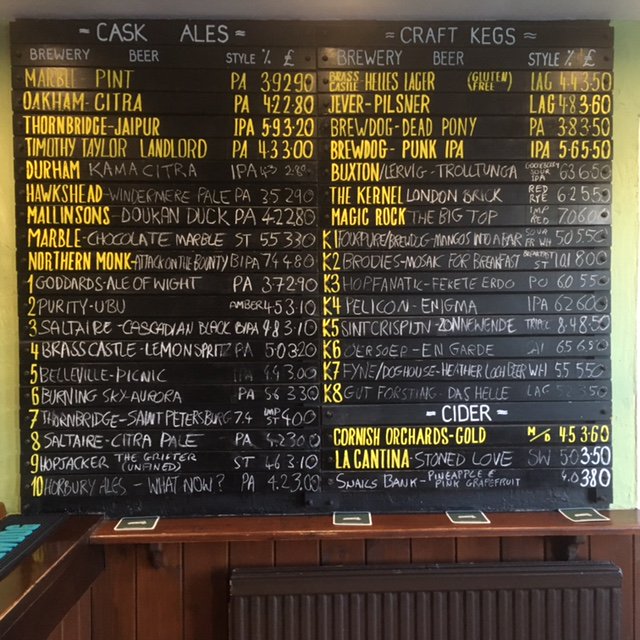 = CASK ALES =
BREWERY BEER STYLE % £
MARBLE PINT PA 3.9 2.90
OAKHAM - CITRA PA 4.2 2.80
THORNBRIDGE - JAIPUR IPA 5.9 3.20
TIMOTHY TAYLOR LANDLORD PA 4.3 3.00
DURHAM KAMA CITRA IPA 4.3 2.80
HAWKSHEAD - WINDERMERE PALE PA 3.5 2.90
MALLINSONS - DOUKAN DUCK PA 4.2 2.80
MARBLE - CHOCOLATE MARBLE ST 5.5 3.30
NORTHERN MONK - ATTACK ON THE BOUNTY BIPA 7.4 4.80
1 GODDARDS - ALE OF WIGHT PA 3.7 2.90
2 PURITY - UBU AMBER 4.5 3.10
3 SALTAIRE - CASCADIAN BLACK BIPA 4.8 3.10
4 BRASS CASTLE - LEMON SPRITZ PA 5.0 3.20
5 BELLEVILLE - PICNIC 4.4 3.00
6 BURNING SKY - AURORA PA 5.6 3.30
7 THORNBRIDGE - SAINT PETERSBURG 7.4 IMP ST 4.00
8 SALTAIRE - CITRA PALE PA 4.2 3.00
9 HOPJACKER THE GRIFTER (UNFINED) ST 4.6 3.10
10 HORBURY ALES - WHAT NOW? PA 4.2 3.00
= CRAFT KEGS =
BREWERY BEER STYLE % £
BRASS CASTLE HELLES LAGER (GLUTEN FREE) LAG 4.4 3.50
JEVER - PILSNER LAG 4.8 3.60
BREWDOG - DEAD PONY PA 3.8 3.50
BREWDOG - PUNK IPA IPA 5.6 5.50
BUXTON/LERVIG - TROLLTUNGA GOOSEBERRY SOUR IPA 6.3 6.50
THE KERNEL LONDON BRICK RED RYE 6.2 5.50
MAGIC ROCK THE BIG TOP IMP RED 7.0 6.00
K1 FOURPURE/BREWDOG - MANGOS INTO A BAR SOUR FR WH 5.0 5.50
K2 BRODIES - MOSAIK FOR BREAKFAST BREAKFAST ST 10.1 8.00
K3 HOPFANATIC - FEKETE ERDO PO 6.0 5.50
K4 PELICON - ENIGMA IPA 6.2 6.00
K5 SINT CRISPIJN - ZONNEWENDE TRIPEL 8.4 8.50
K6 OERSOEP - EN GARDE 6.5 6.50
K7 FYNE/DOGHOUSE - HEATHER LOCH BEER WH 5.5 5.50
K8 GUT FORSTING - DAS HELLE LAG
= CIDER =
CORNISH ORCHARDS - GOLD M/D 4.5 3.60
LA CANTINA - STONED LOVE SW 5.0 3.50
SNAILS BANK - PINEAPPLE & PINK GRAPEFRUIT 4.0 3.80